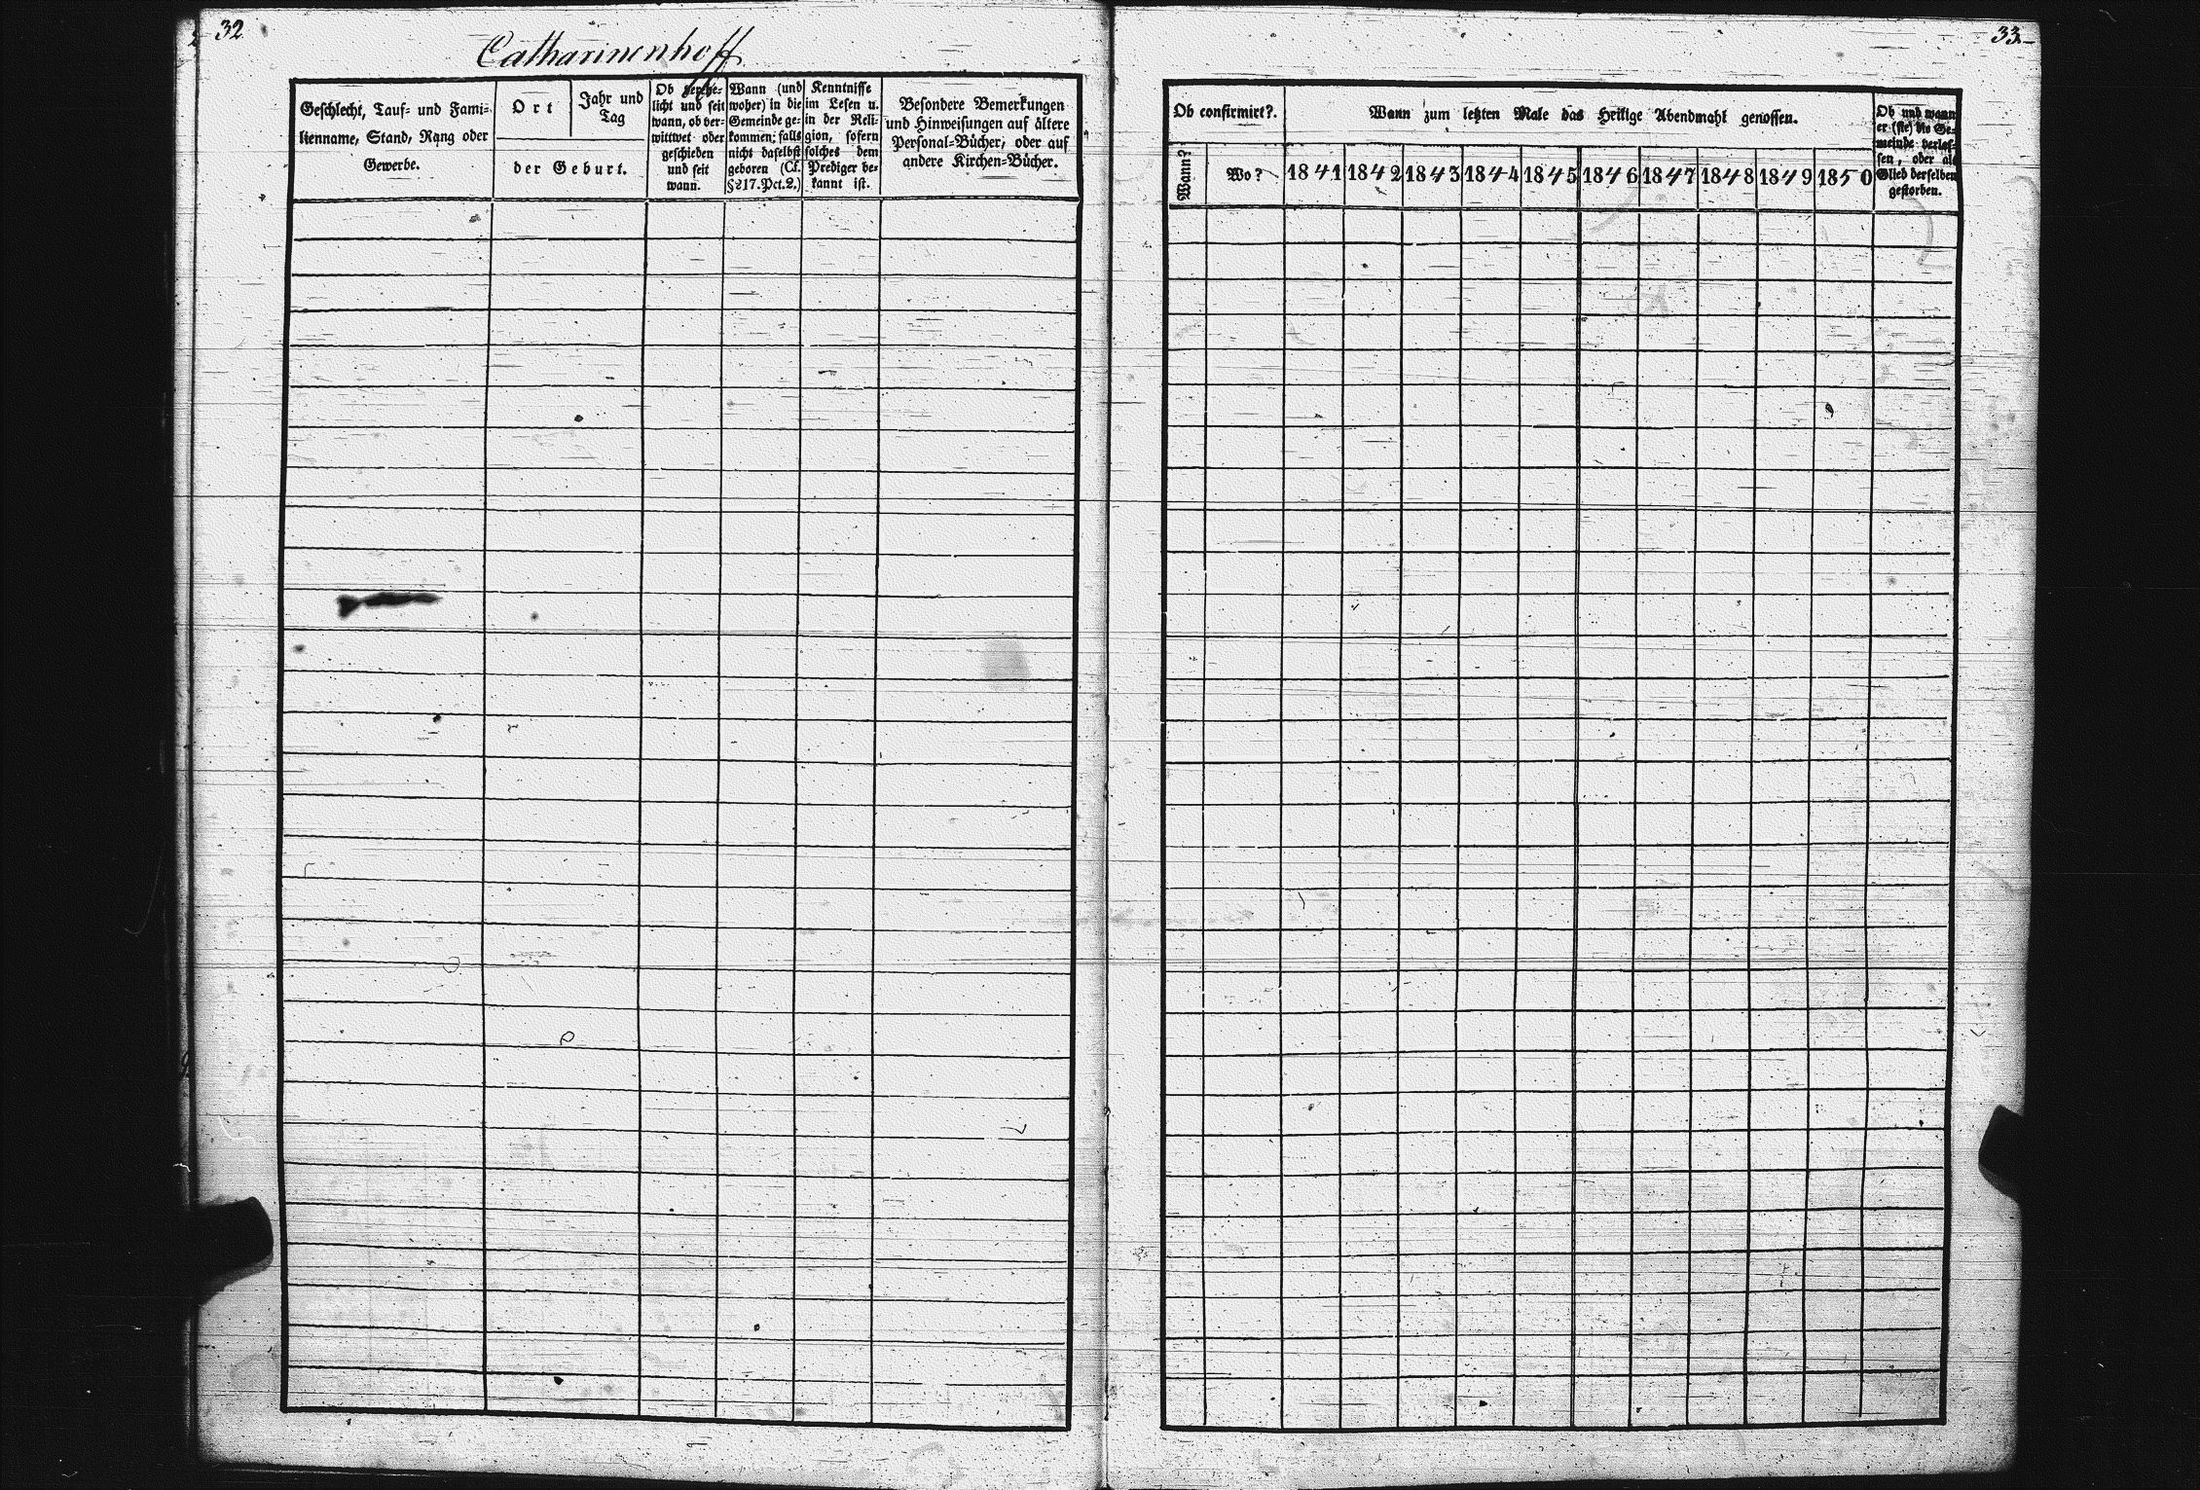 32
Catharinenhoff
Geschlecht, Tauf- und Fami-
lienname, Stand, Rang oder
Gewerbe.
Ort
Jahr und
Tag
der Geburt.
Ob verehe-
licht und seit
wann, ob ver-
wittwet oder
geschieden
und seit
wann.
Wann (und
woher) in die
Gemeinde ge-
kommen; falls
nicht daselbst
geboren (Cf.
§ 217. Pct. 2.)
Kenntnisse
im Lesen u.
in der Reli-
gion, sofern
solches dem
Prediger be-
kannt ist.
Besondere Bemerkungen
und Hinweisungen auf ältere
Personal-Bücher, oder auf
andere Kirchen-Bücher.
33
Ob confirmirt?
Wann?
Wo?
Wann zum letzten Male das Heilige Abendmahl genossen.
1841 1842 1843 1844 1845 1846 1847 1848 1849 1850
Ob und wann
er (sie) die Ge-
meinde verlas-
sen, oder als
Glied derselben
gestorben.